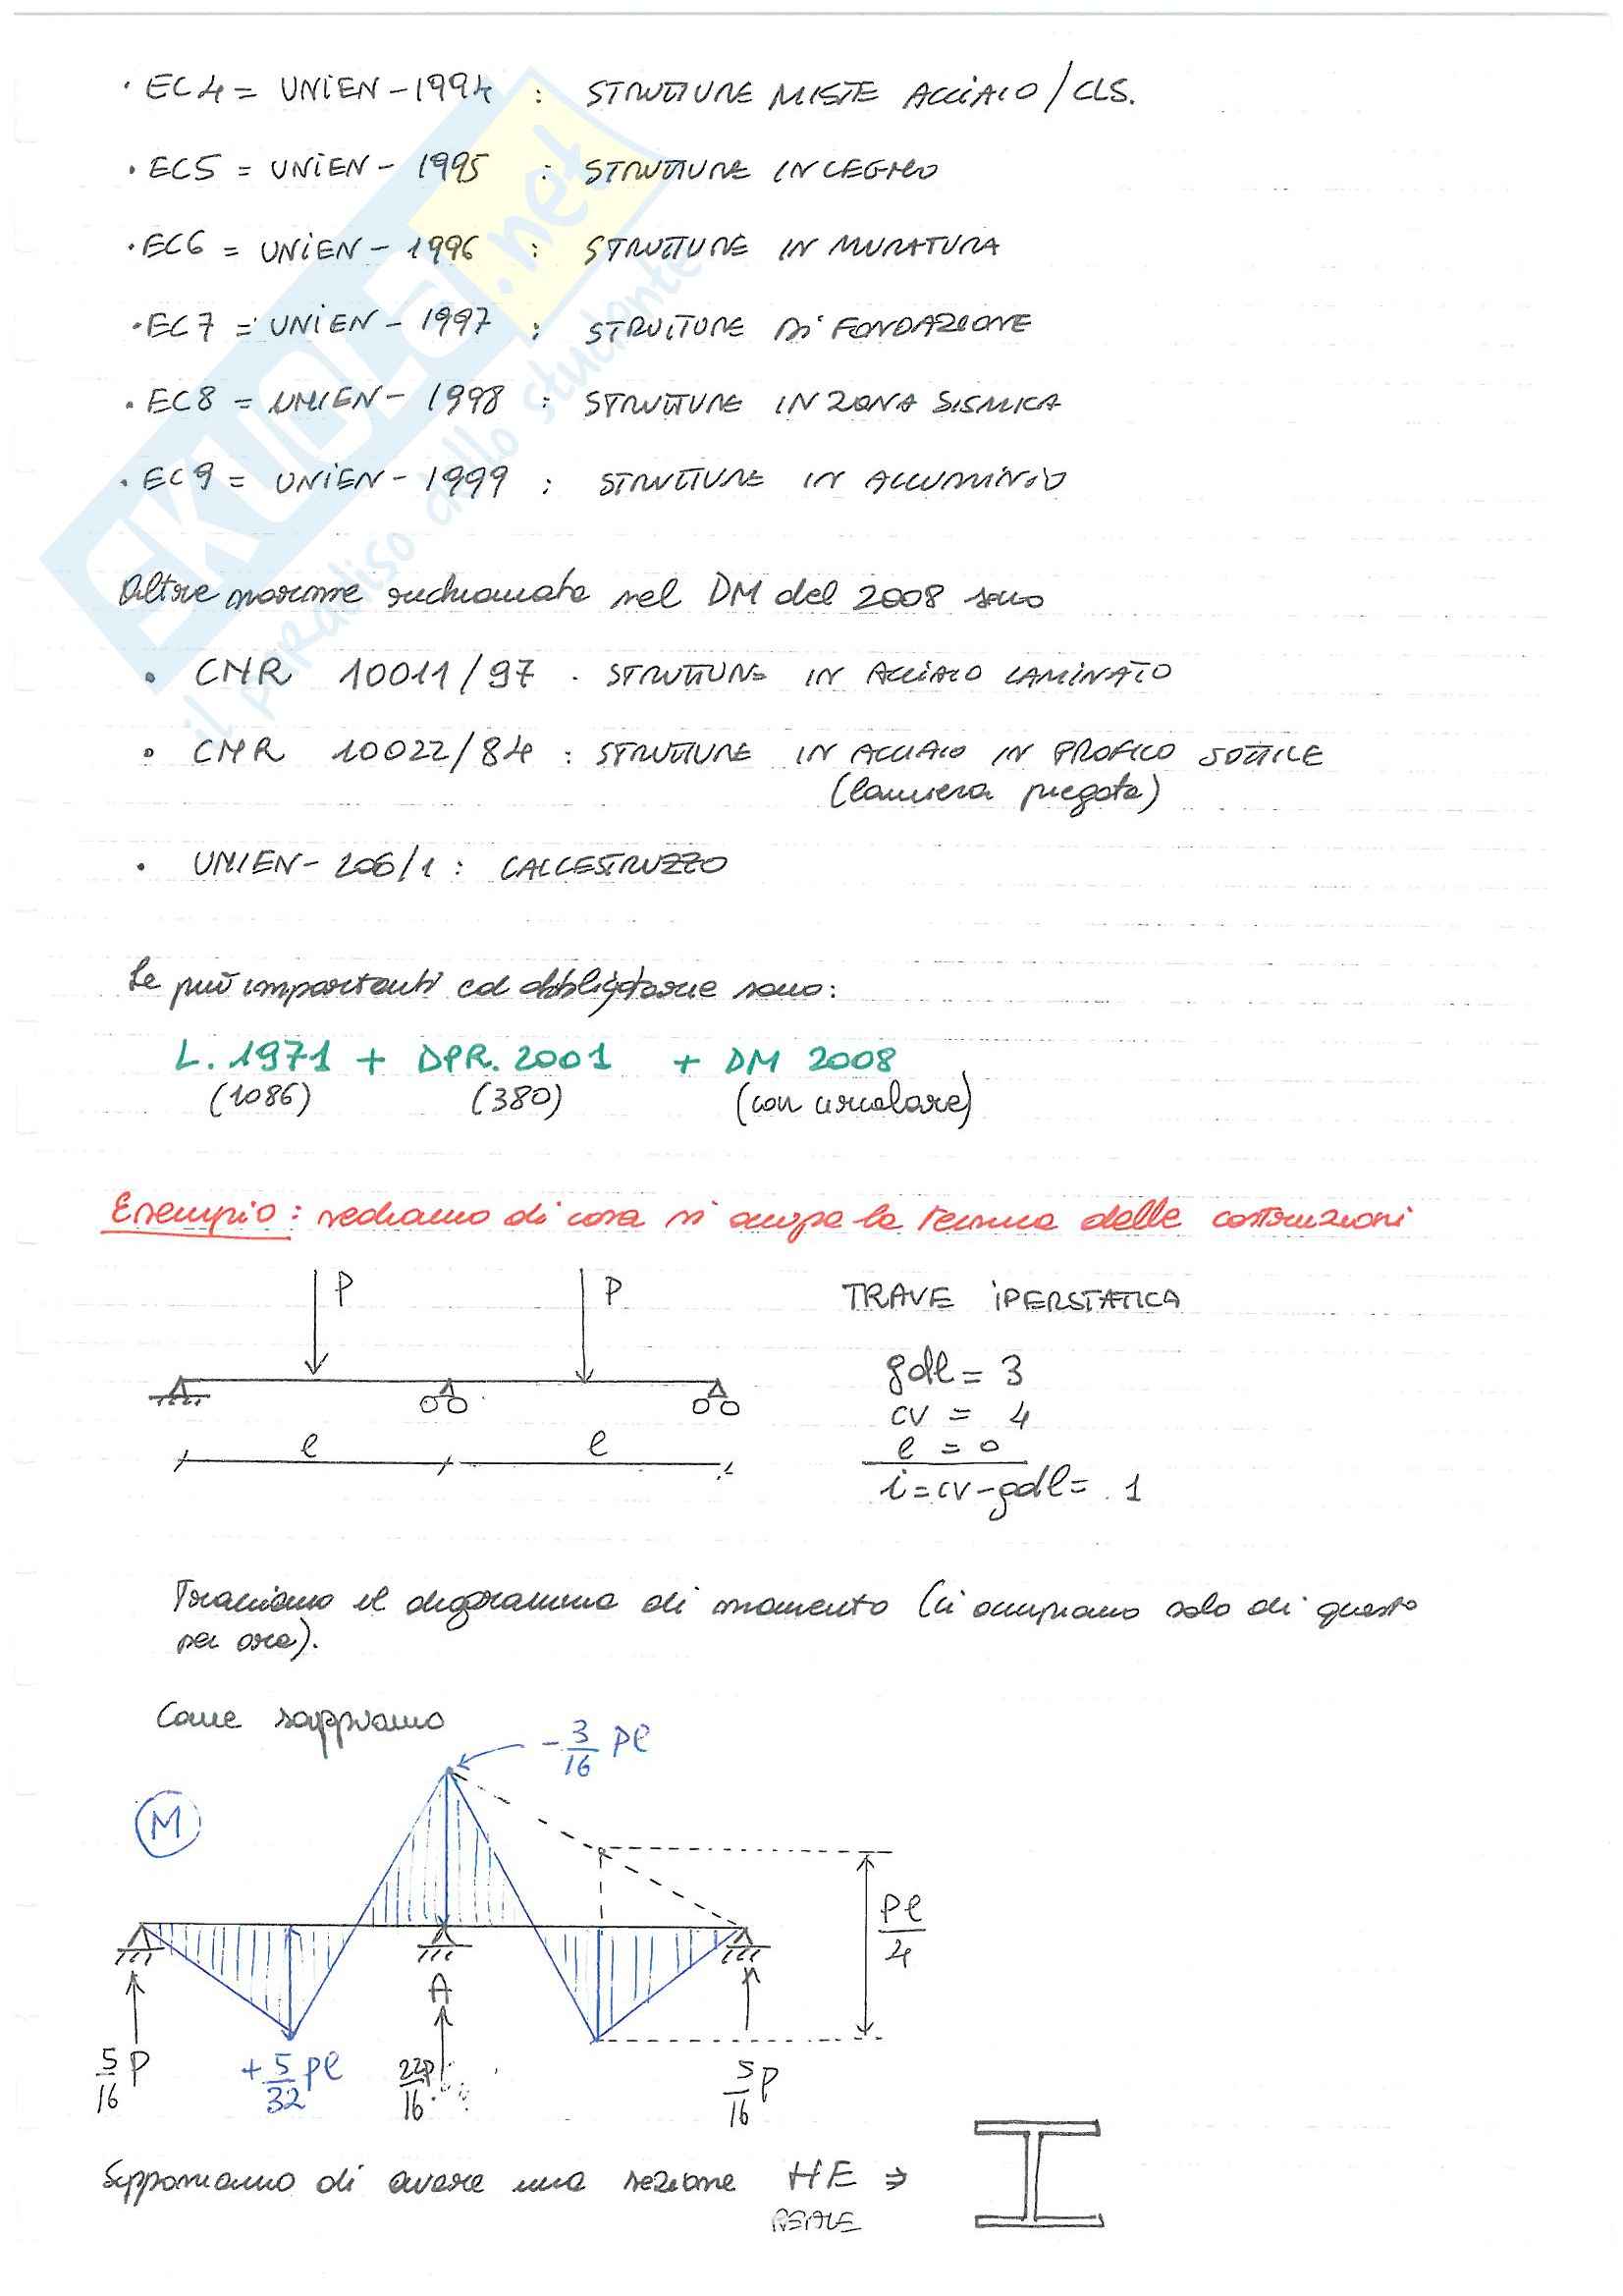 • EC4 = UNIEN - 1994 : STRUTTURE MISTE ACCIAIO / CLS.
• EC5 = UNIEN - 1995 : STRUTTURE IN LEGNO
• EC6 = UNIEN - 1996 : STRUTTURE IN MURATURA
• EC7 = UNIEN - 1997 : STRUTTURE DI FONDAZIONE
• EC8 = UNIEN - 1998 : STRUTTURE IN ZONA SISMICA
• EC9 = UNIEN - 1999 : STRUTTURE IN ALLUMINIO
SKUOLA.net
il paradiso dello studente
Altre norme richiamate nel DM del 2008 sono
• CNR 10011/97 . STRUTTURE IN ACCIAIO LAMINATO
• CNR 10022/84 : STRUTTURE IN ACCIAIO IN PROFILO SOTTILE
(lamiera piegata)
• UNIEN - 206/1 : CALCESTRUZZO
Le più importanti ed obbligatorie sono:
L. 1971 + DPR. 2001 + DM 2008
(1086) (380) (con circolare)
Esempio: vediamo di cosa si occupa la tecnica delle costruzioni
P P TRAVE IPERSTATICA
gdl = 3
cv = 4
l = 0
l l
i = cv - gdl = 1
Tracciamo il diagramma di momento (ci occupiamo solo di questo
per ora).
Come sappiamo
- 3/16 Pl
M
Pl/4
A
5/16 P + 5/32 Pl 22P/16 5/16 P
Supponiamo di avere una sezione HE ⇒
REALE